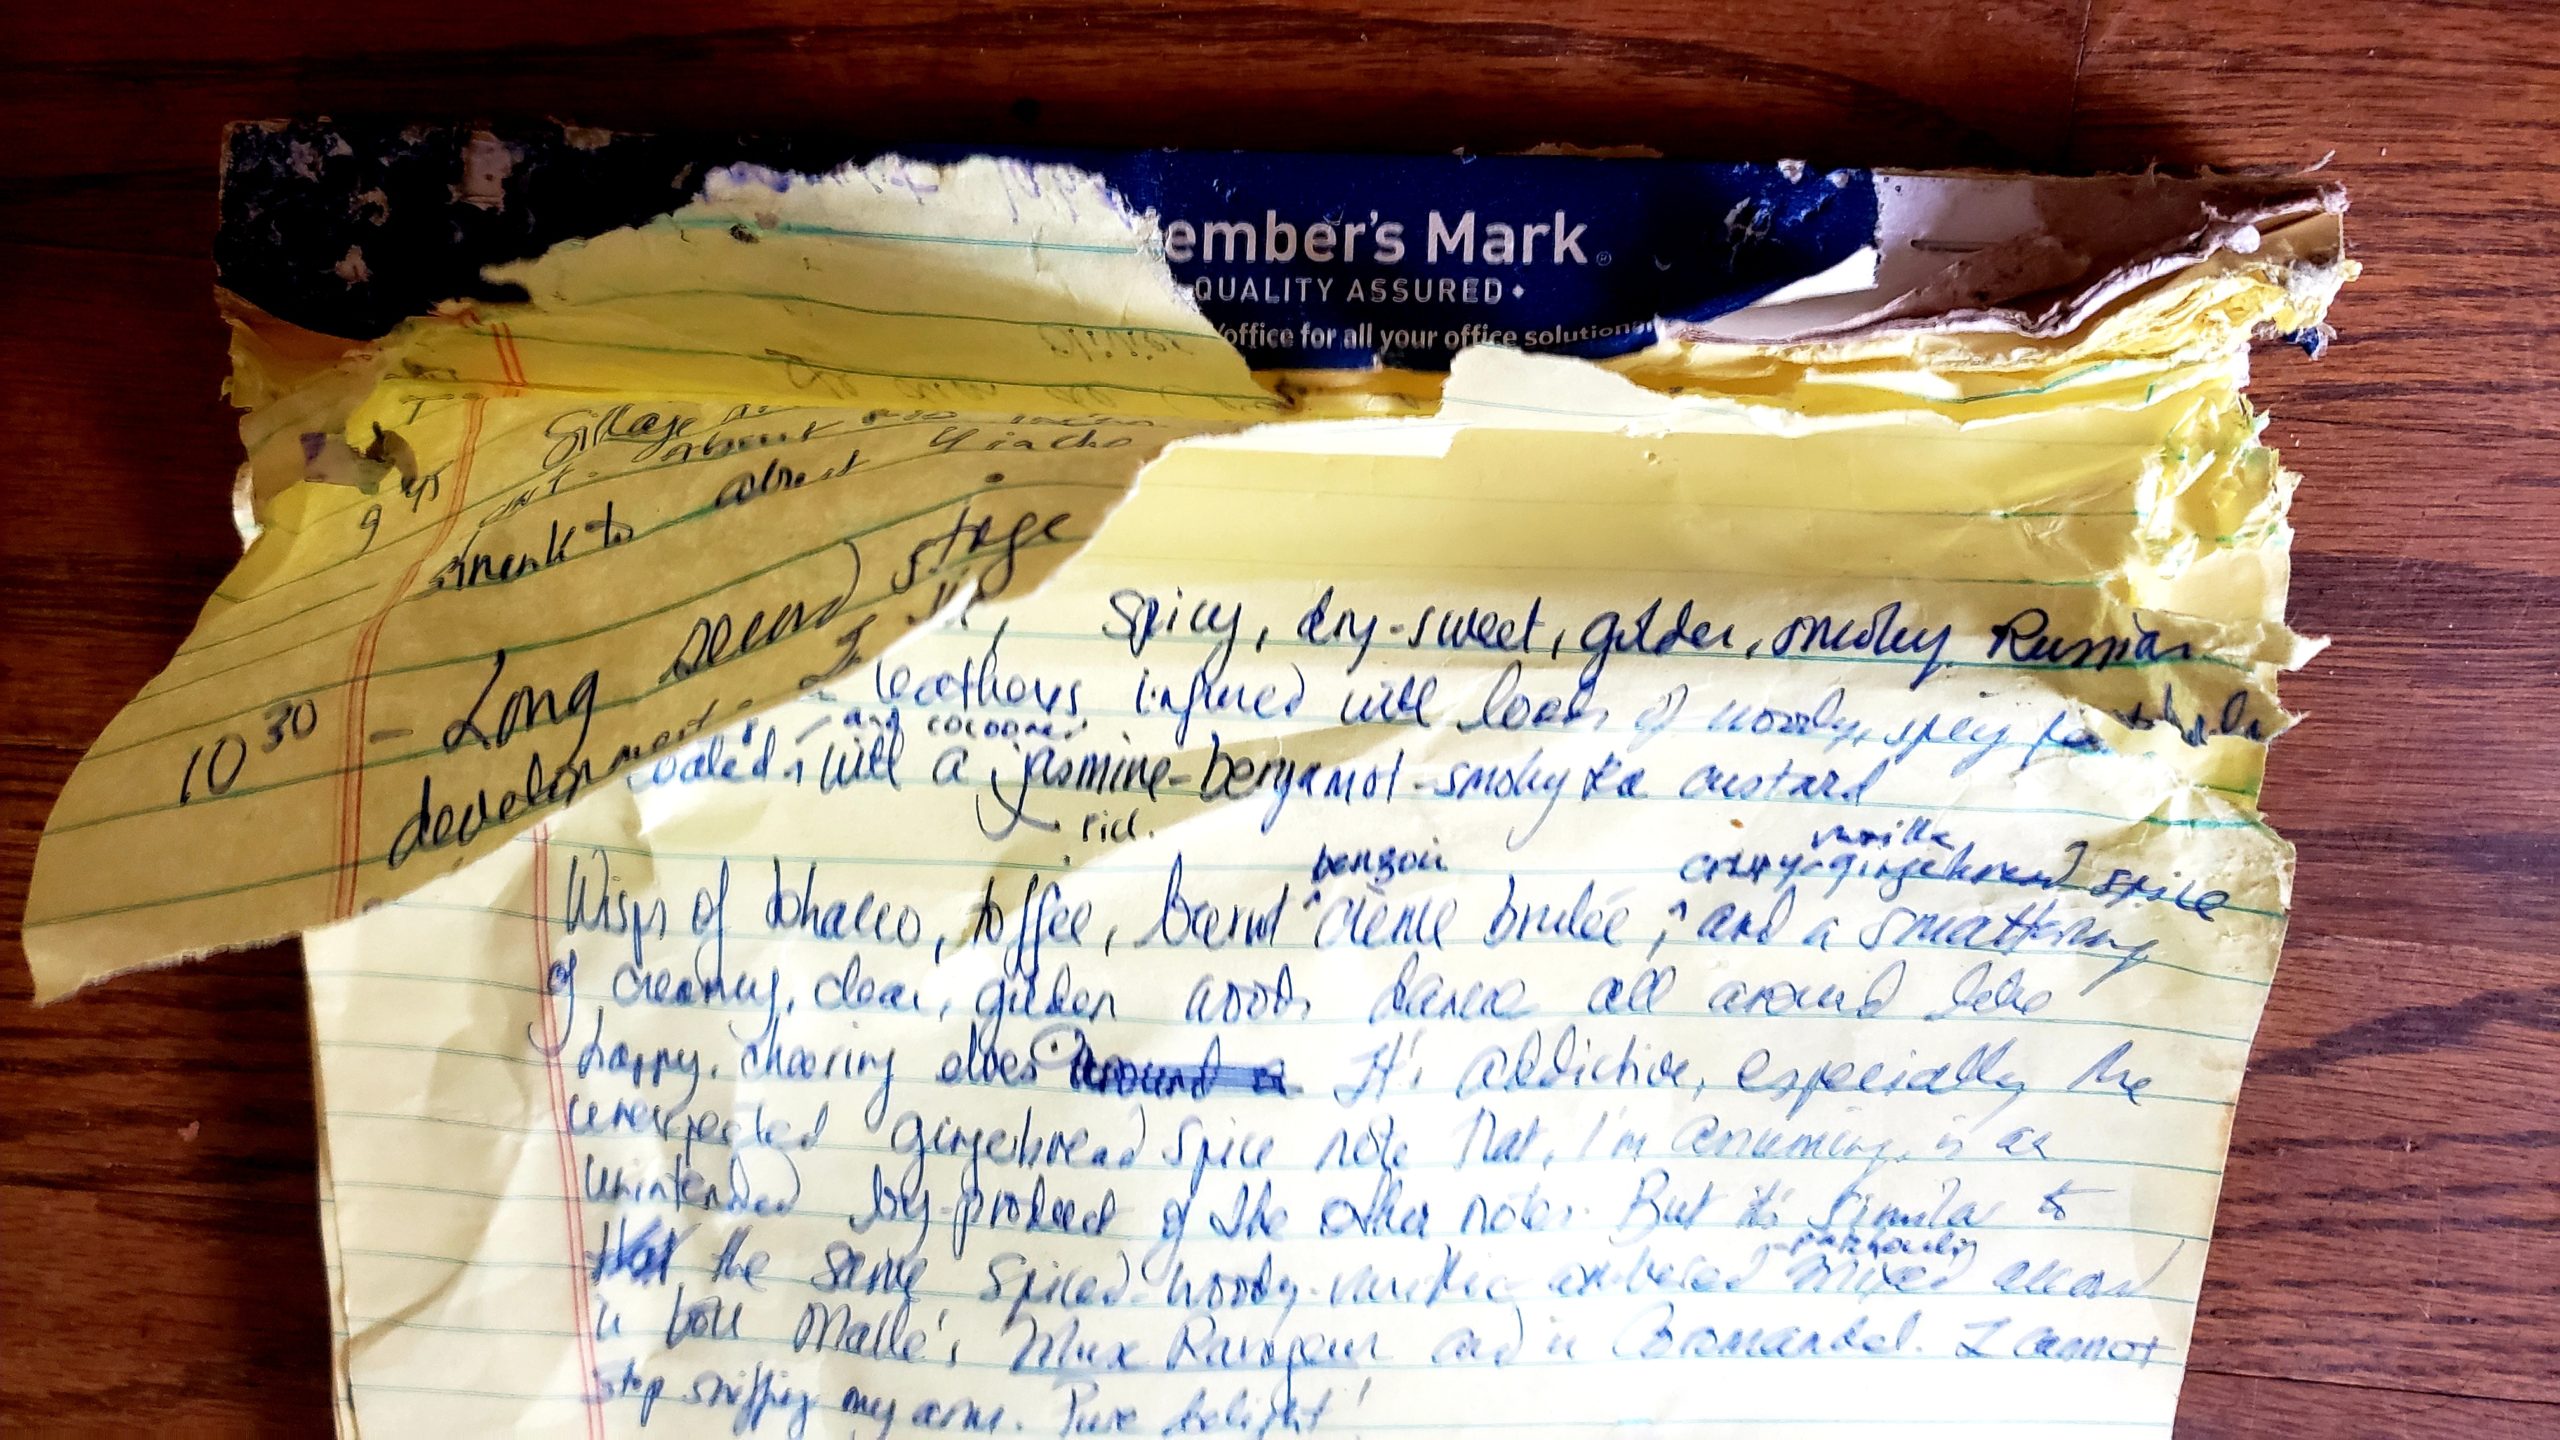 ember's Mark®
QUALITY ASSURED
/office for all your office solutions
Sillage
about
9 45
shrank to about 4 inches
10 30 - Long second stage
development.
Spicy, dry-sweet, golden, smoky Russian
leathers infused with loads of woody, spicy
and cocooned
coated, with a jasmine-bergamot-smoky tea custard
rich
benzoin vanilla
crispy-gingerbread spice
Wisps of tobacco, toffee, burnt crème brulée, and a smattering
of creamy, clear, golden woods dance all around like
happy, cheering elves. around a It's addictive, especially the
unexpected gingerbread spice note that, I'm assuming, is an
unintended by-product of the other notes. But it's similar to
patchouli
that the same spiced-woody-vanillic-ambered mixed accord
in both Malle's Musc Ravageur and in Coromandel. I cannot
stop sniffing my arm. Pure delight!